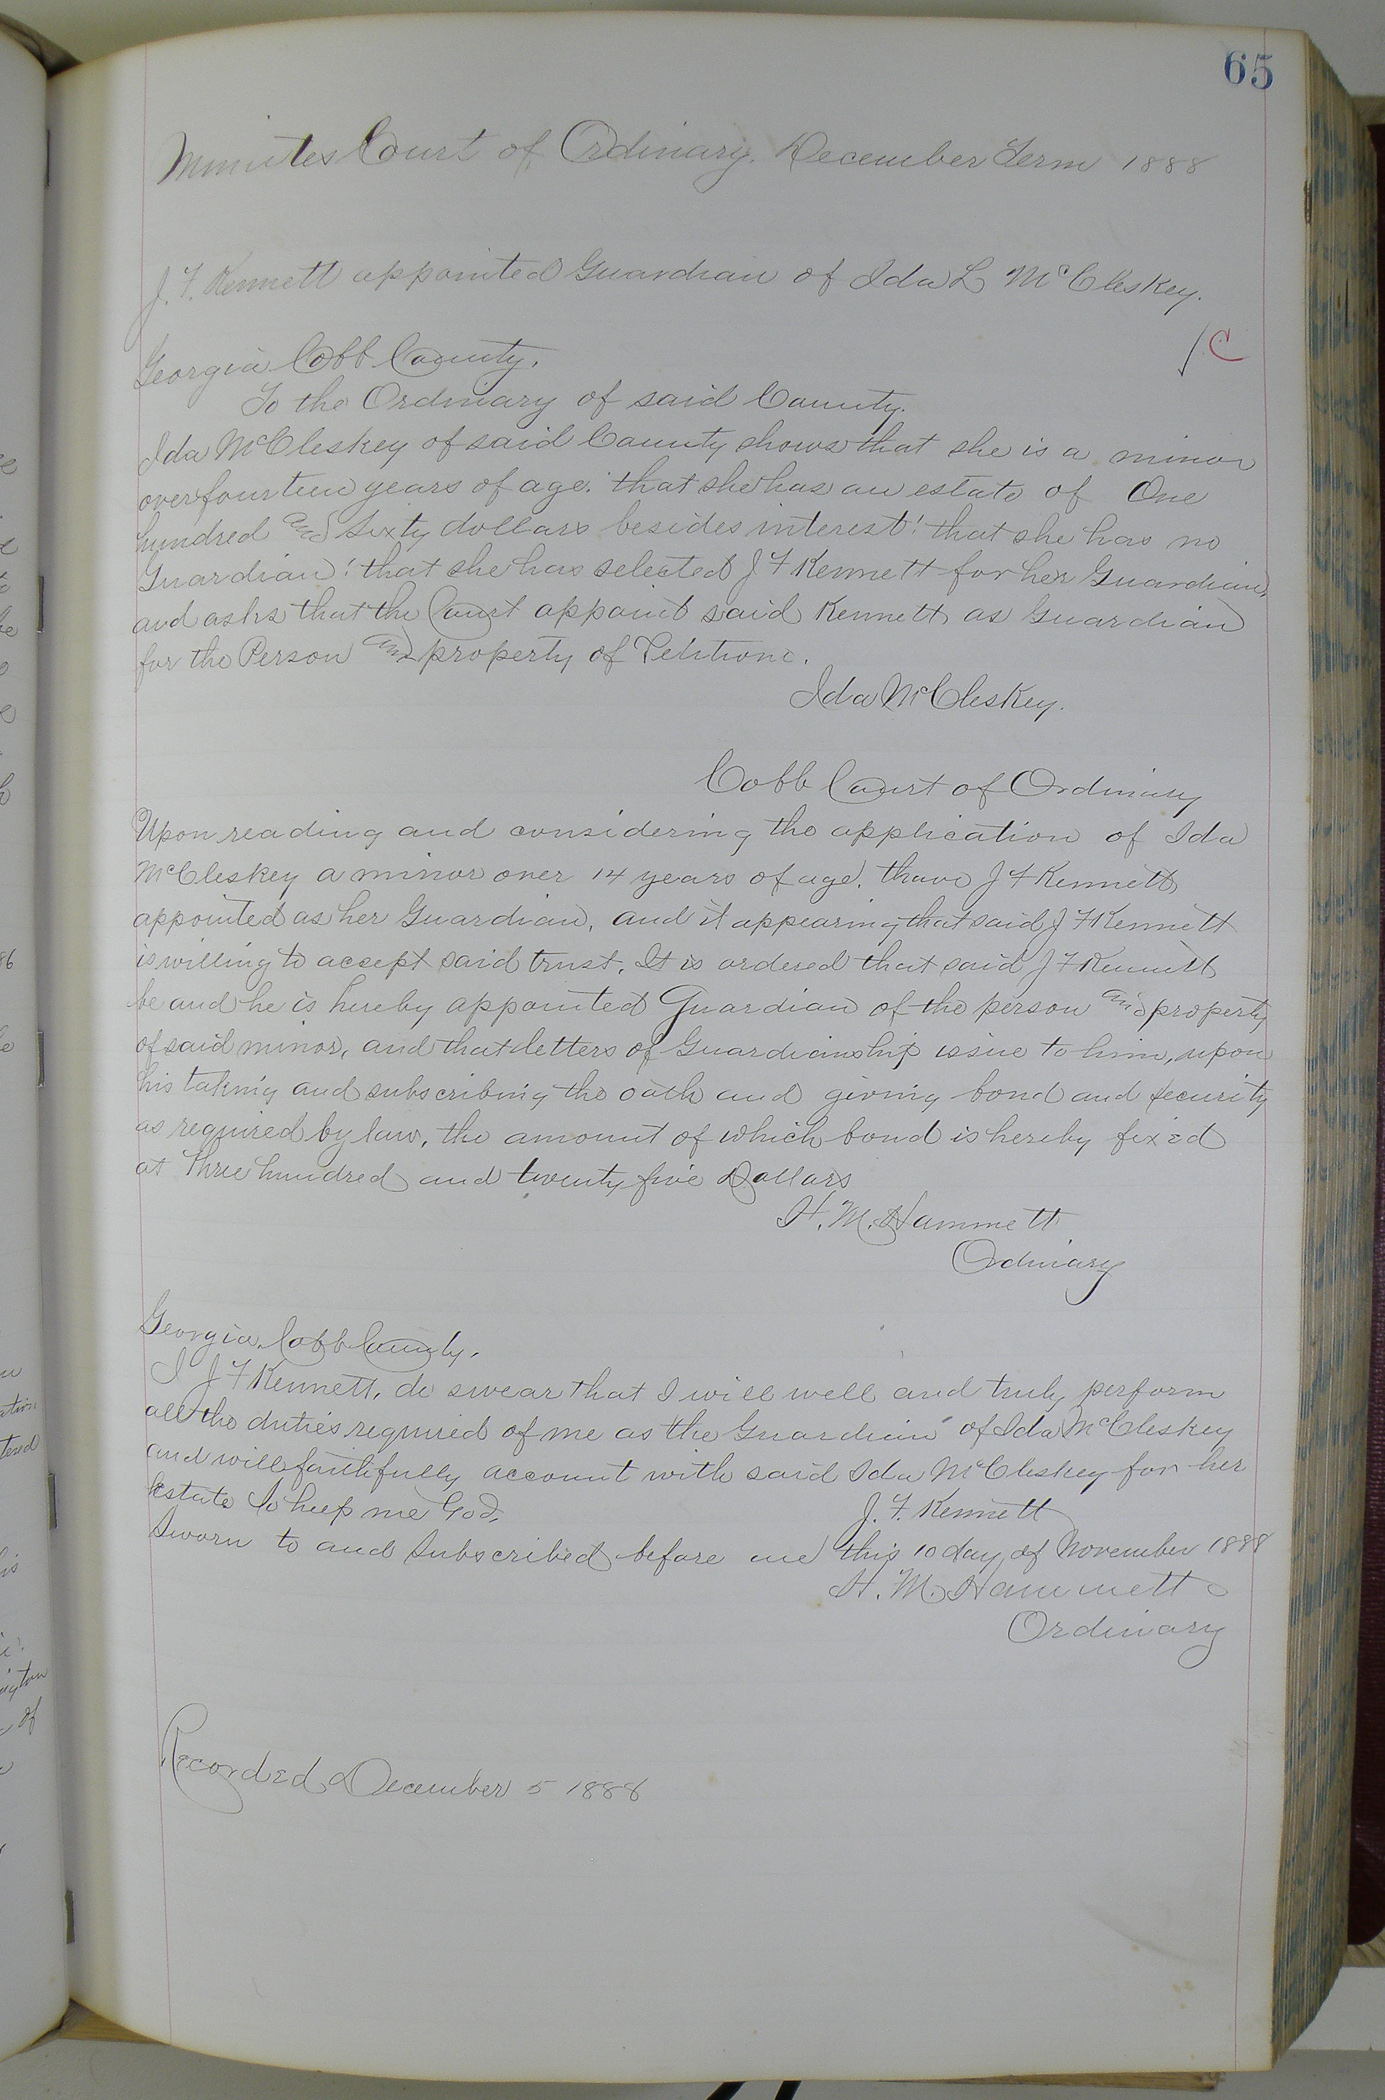 65
Minutes Court of Ordinary. December Term 1888
J. F. Kennett appointed Guardian of Ida L McCleskey.
/C
Georgia Cobb County.
To the Ordinary of said County.
Ida McCleskey of said County shows that she is a minor
over fourteen years of age. that she has an estate of One
hundred and sixty dollars besides interest! that she has no
Guardian! that she has selected J F Kennett for her Guardian,
and asks that the Court appoint said Kennett as Guardian
for the Person and property of Petitione.
Ida McCleskey.
Cobb Court of Ordinary
Upon reading and considering the application of Ida
McCleskey a minor over 14 years of age. thave J F Kennett
appointed as her Guardian, and it appearing that said J F Kennett
is willing to accept said trust. It is ordered that said J F Kennett
be and he is hereby appointed Guardian of the person and property
of said minor, and that letters of Guardianship issue to him, upon
his taking and subscribing the oath and giving bond and security
as required by law, the amount of which bond is hereby fixed
at Three hundred and twenty five Dollars
H. M. Hammett
Ordinary
Georgia. Cobb County.
I J F Kennett. do swear that I will well and truly perform
all the duties required of me as the Guardian of Ida McCleskey
and will faithfully account with said Ida McCleskey for her
Estate So help me God.
J. F. Kennett
Sworn to and Subscribed before me this 10 day of November 1888
H. M. Hammett
Ordinary
Recorded December 5 1888